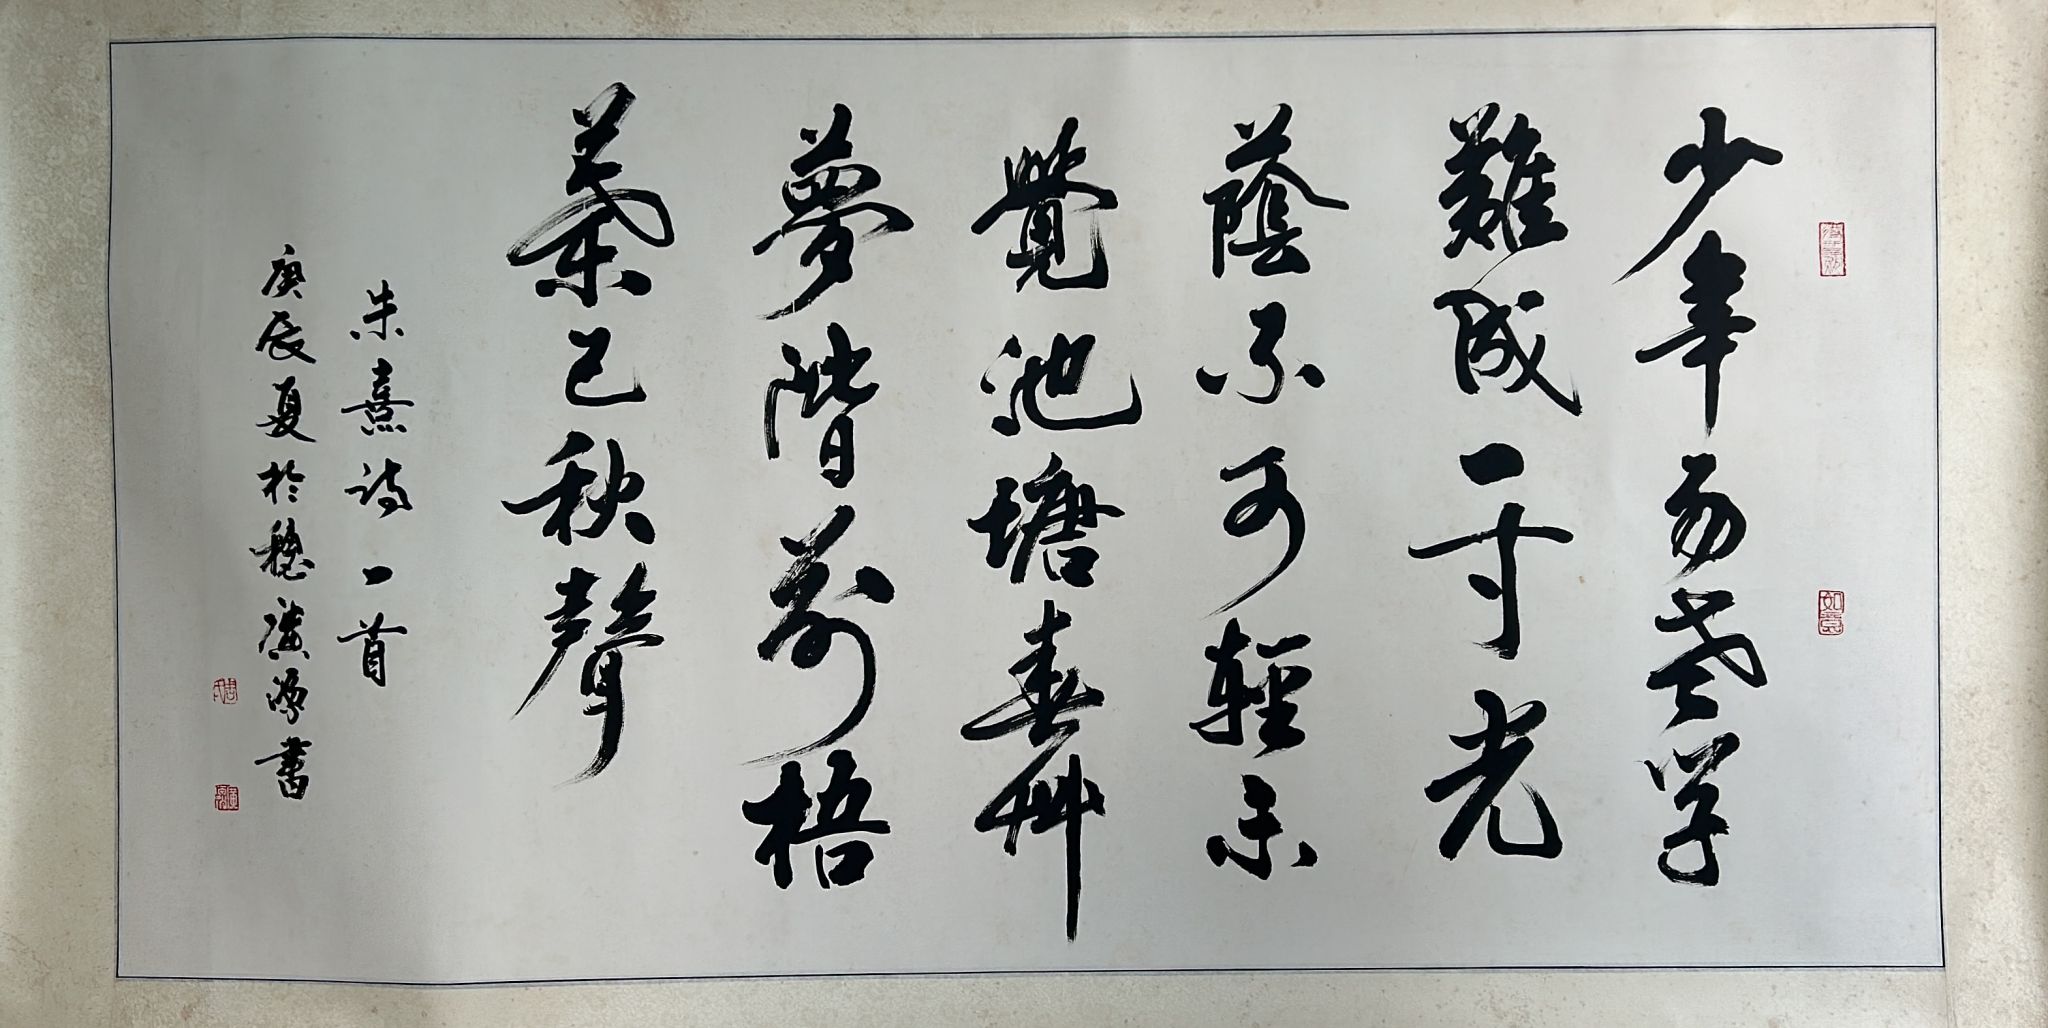 少年易老学
難成一寸光
蔭不可輕未
覺池塘春艸
夢階前梧
葉已秋聲
朱熹詩一首
庚辰夏於穗廣源書
如意